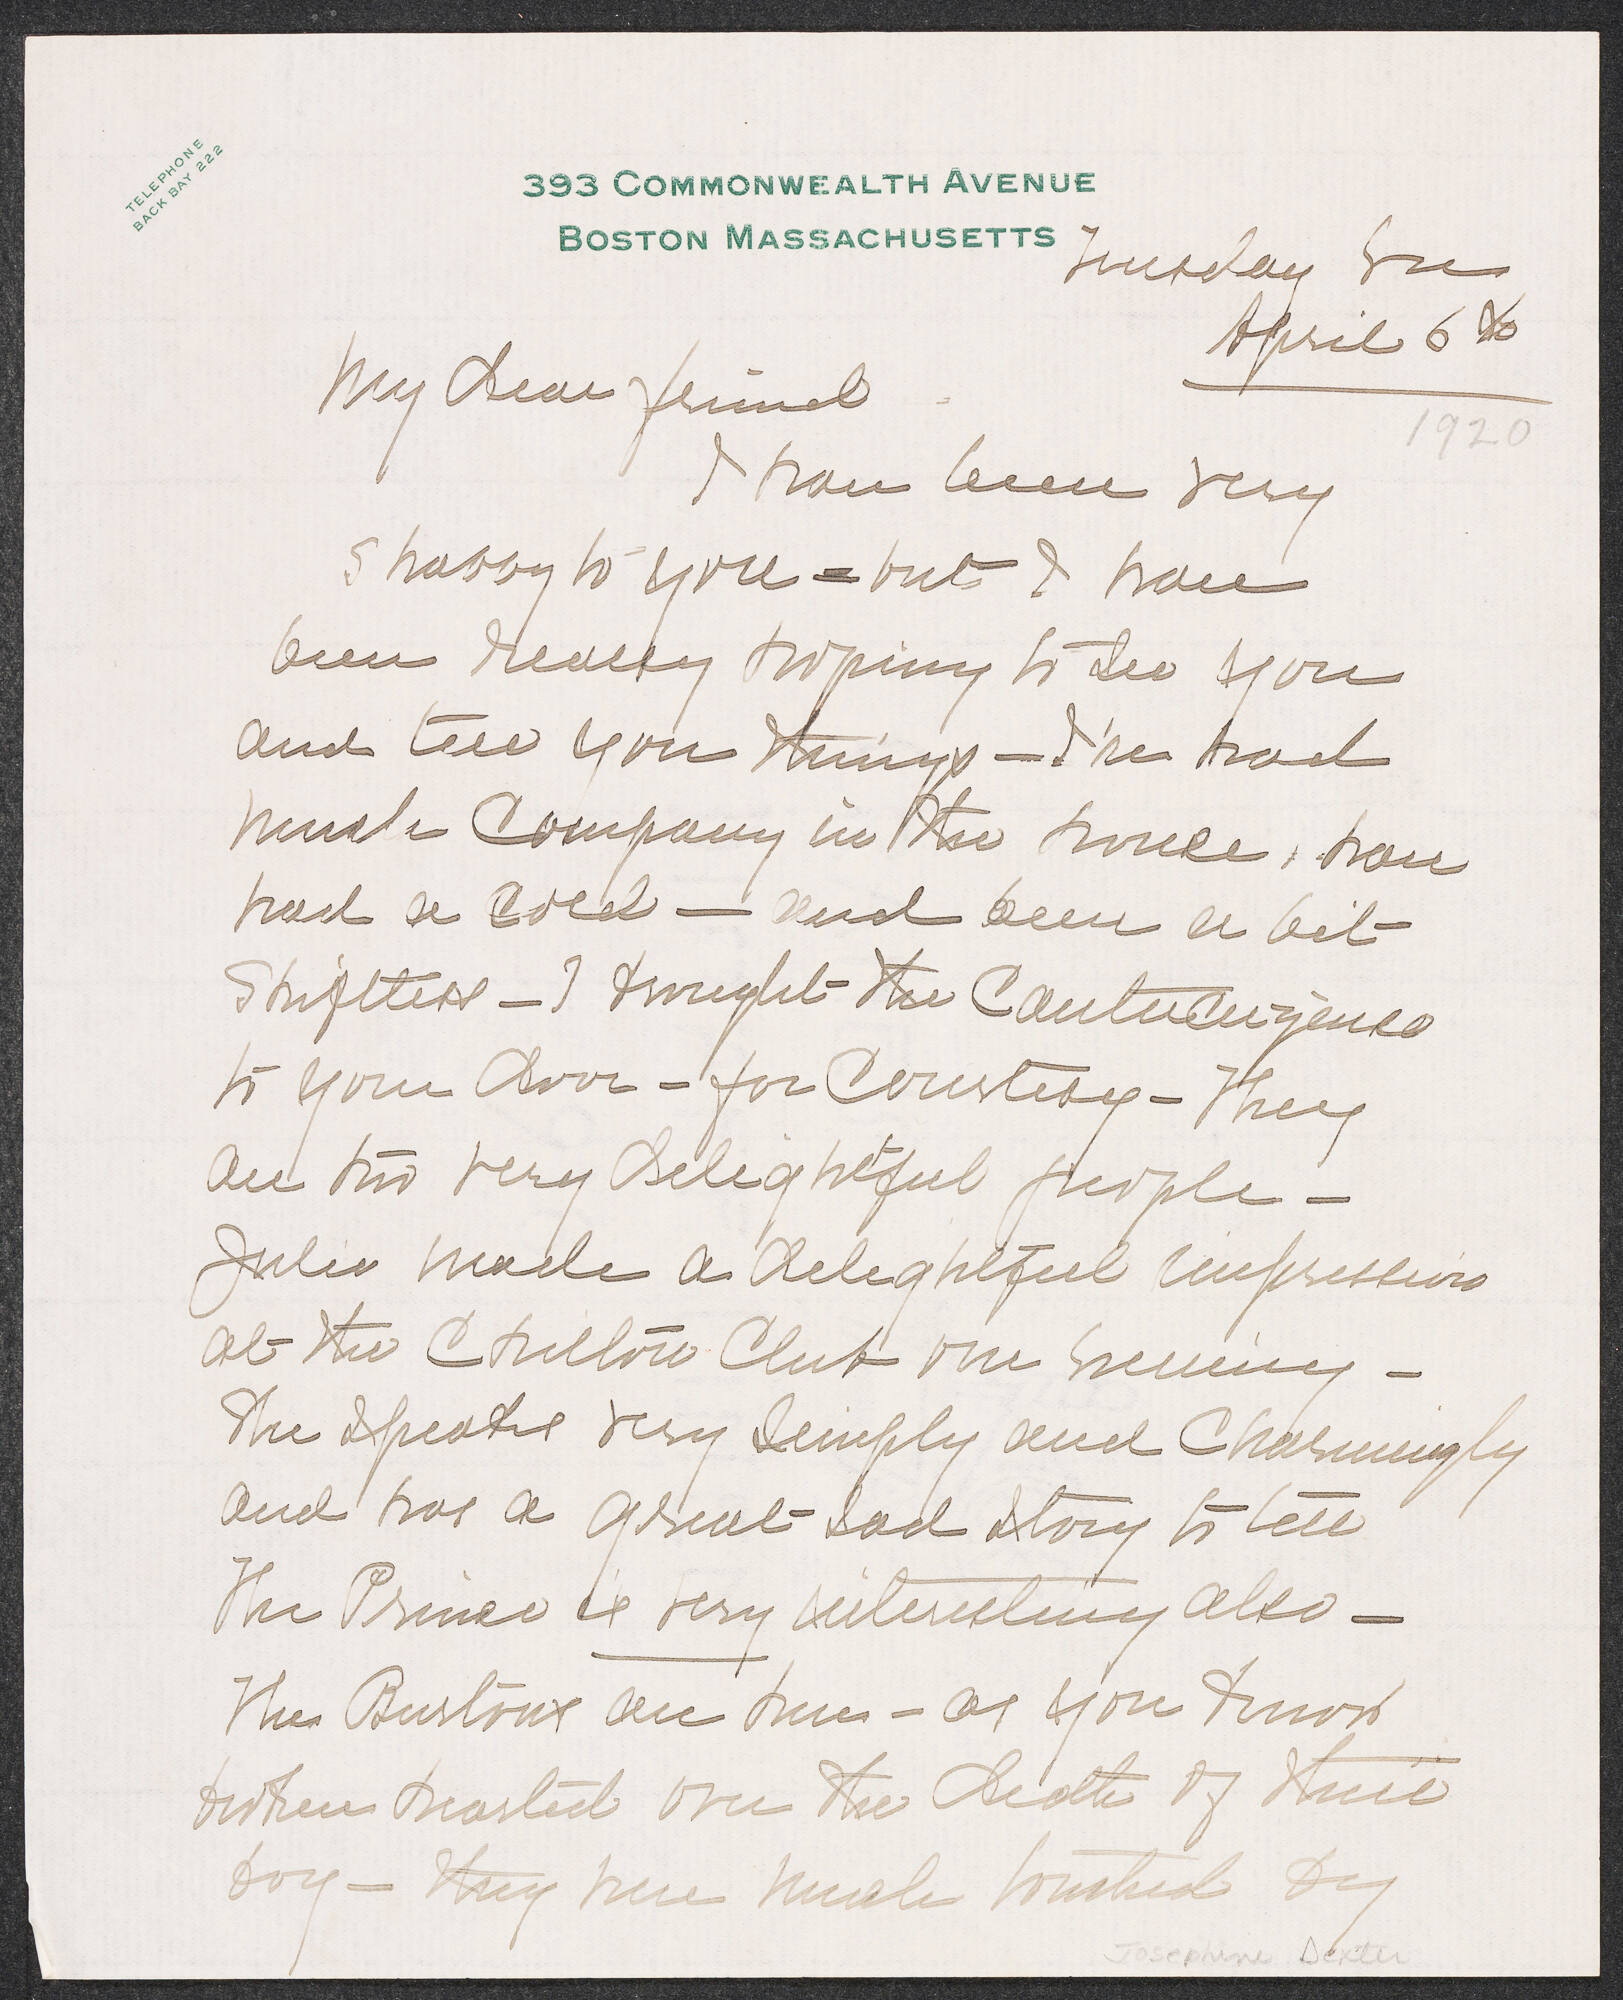 TELEPHONE
BACK BAY 222
393 COMMONWEALTH AVENUE
BOSTON MASSACHUSETTS
Tuesday Eve
April 6th
1920
My dear friend
I have been very
shabby to you = but I have
been really hoping to see you
and tell you things — I've had
much Company in the house, have
had a cold — and been a bit
shiftless — I brought the Cantacuzenes
to your door — for Courtesy — They
are two very delightful people —
Julia made a delightful impression
at the Chilton Club one Evening —
She speaks very simply and Charmingly
and has a great sad story to tell
The Prince is very interesting also —
The Burtons are here — as you know
broken hearted over the death of their
boy — they were much touched by
Josephine Dexter